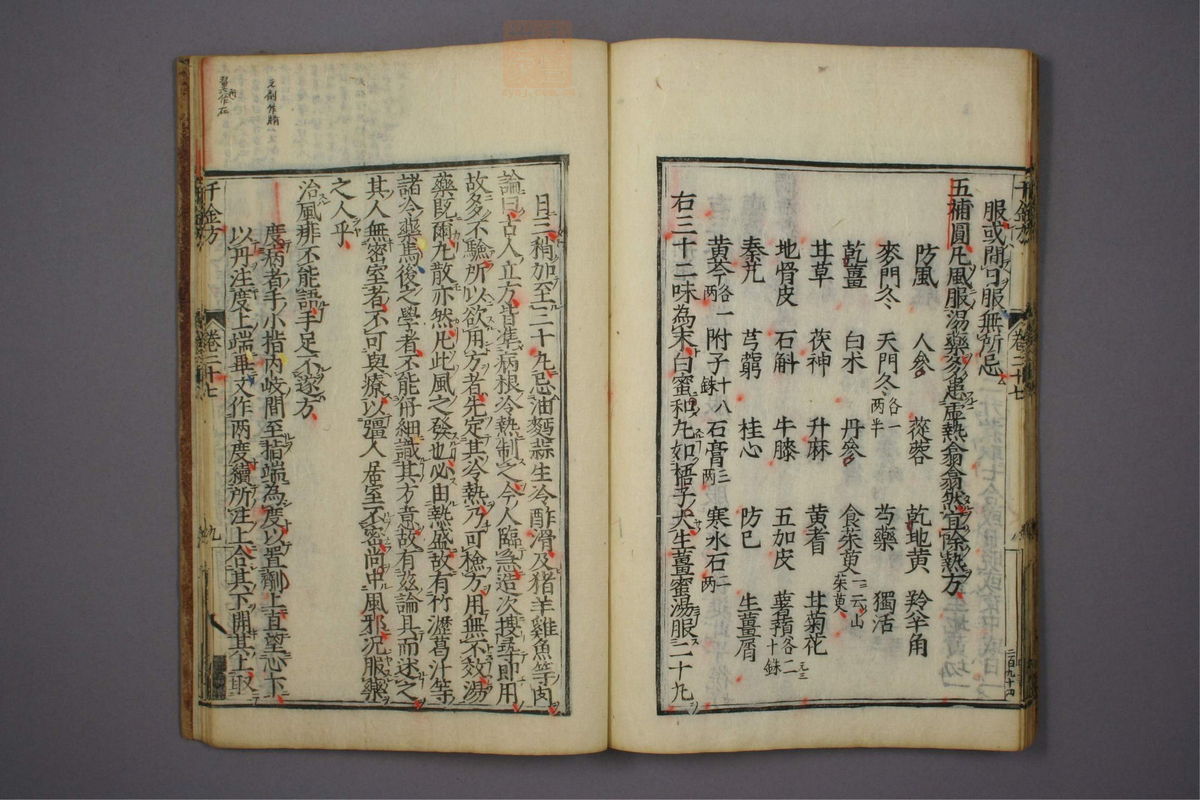 服或間日服無所忌
五補圓凡風服湯藥多患虛熱翕翕然宜除熱方
防風 人參 蓯蓉 乾地黃 羚羊角
麥門冬 天門冬各一兩半 芍藥 獨活
乾薑 白朮 丹參 食茱萸一云山茱萸
甘草 茯神 升麻 黃耆 甘菊花
地骨皮 石斛 牛膝 五加皮 薯蕷各二十銖
秦艽 芎藭 桂心 防己 生薑屑
黃芩各一兩 附子十八銖 石膏三兩 寒水石二兩
右三十二味為末白蜜和丸如梧子大生薑蜜湯服二十丸
千金方 卷二十七
日三稍加至三十丸忌油麵蒜生冷酢滑及猪羊雞魚等肉
論曰古人立方皆準病根冷熱制之今人臨急造次搜尋即用
故多不驗所以欲用方者先定其冷熱乃可檢方用無不效湯
藥既爾丸散亦然凡此風之發也必由熱盛故有竹瀝葛汁等
諸冷藥焉後之學者不能仔細識其方意故有茲論具而述之
其人無密室者不可與療以彊人居室不密尚中風邪況服藥
之人乎
治風痱不能語手足不遂方
度病者手小指內歧間至指端為度以置臍上直望心下
以丹注度上端畢又作兩度續所注上合其下開其上取
千金方 卷二十七 九